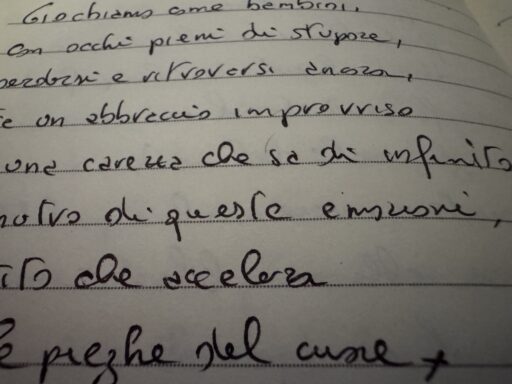 Giochiamo come bambini,
con occhi pieni di stupore,
perdersi e ritroversi ancora,
e un abbraccio improvviso
una carezza che sa di infinito
nutro di queste emozioni,
che accelera
e pieghe del cuore